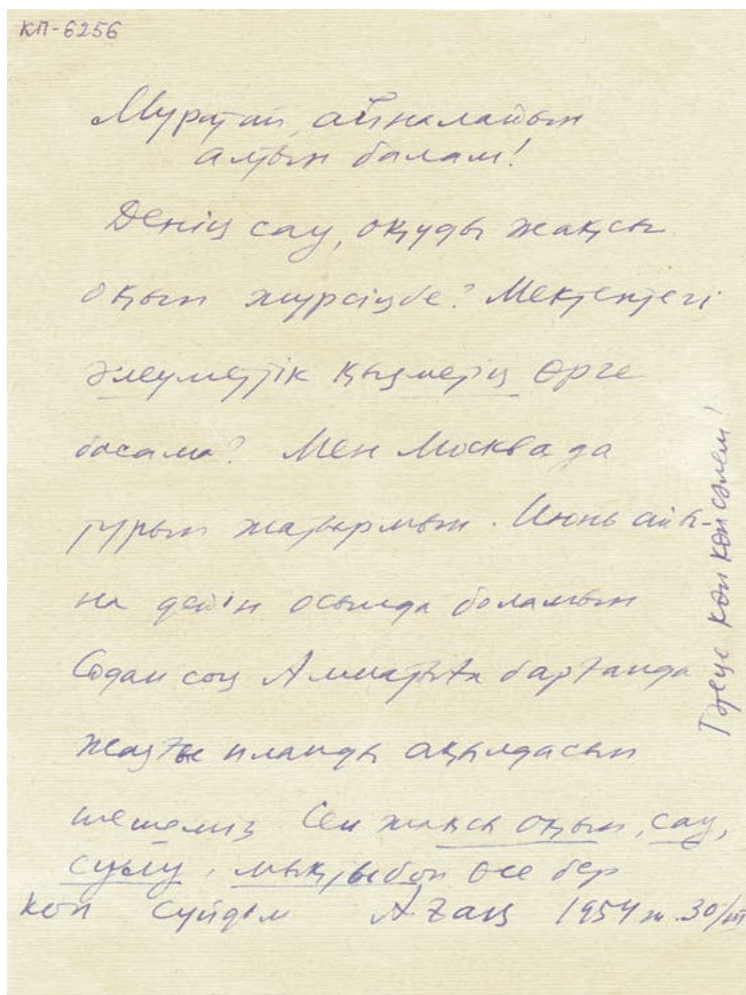 КП-6256
Мұратай, айналайын
алтын балам!
Денің сау, оқуды жақсы
оқып жүрсіңбе? Мектептегі
әлеуметтік қызметің өрге
босама? Мен Москвада
тұрып жатырмын. Июнь айы-
на дейін осында боламын
Содан соң Алматыға барғанда
жазғы планды ақылдасып
шешеміз Сен жақсы оқып, сау,
сұлу, мықты боп өсе бер
көп сүйдім Ағаң 1954 ж. 30/III
көп көп сәлем!